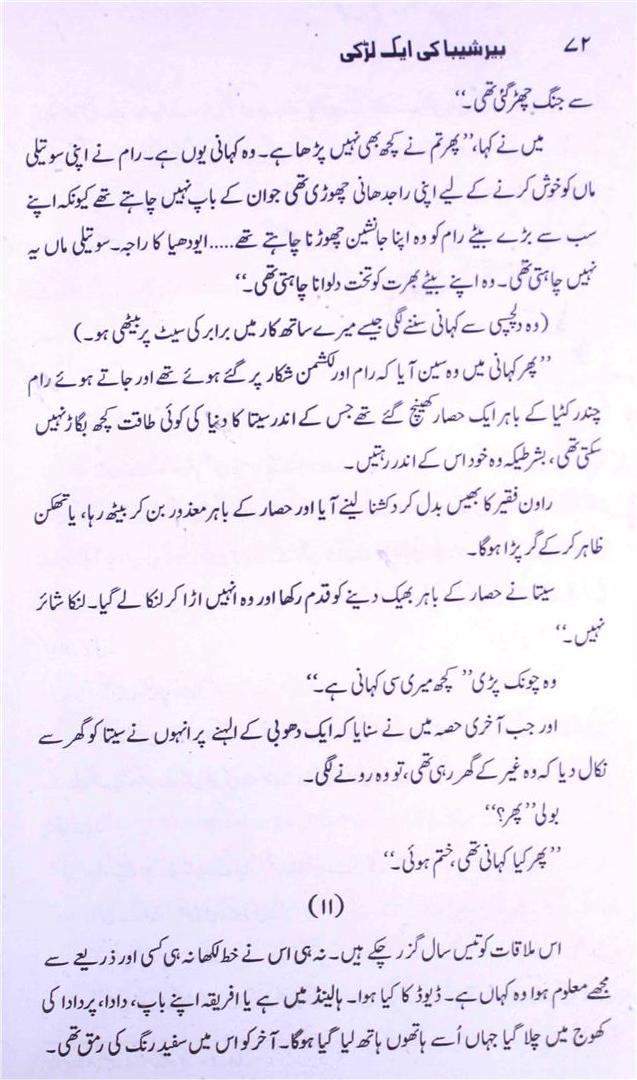 ۷۲ بیرشیبا کی ایک لڑکی
سے جنگ چھڑ گئی تھی۔‘‘
میں نے کہا، ’’پھر تم نے کچھ بھی نہیں پڑھا ہے۔ وہ کہانی یوں ہے۔ رام نے اپنی سوتیلی
ماں کو خوش کرنے کے لیے اپنی راجدھانی چھوڑی تھی جو ان کے باپ نہیں چاہتے تھے کیونکہ اپنے
سب سے بڑے بیٹے رام کو وہ اپنا جانشین چھوڑنا چاہتے تھے.....ایودھیا کا راجہ۔ سوتیلی ماں یہ
نہیں چاہتی تھی۔ وہ اپنے بیٹے بھرت کو تخت دلوانا چاہتی تھی۔‘‘
(وہ دلچسپی سے کہانی سننے لگی جیسے میرے ساتھ کار میں برابر کی سیٹ پر بیٹھی ہو۔)
’’پھر کہانی میں وہ سین آیا کہ رام اور لکشمن شکار پر گئے ہوئے تھے اور جاتے ہوئے رام
چندر کٹیا کے باہر ایک حصار کھینچ گئے تھے جس کے اندر سیتا کا دنیا کی کوئی طاقت کچھ بگاڑ نہیں
سکتی تھی، بشرطیکہ وہ خود اس کے اندر رہتیں۔
راون فقیر کا بھیس بدل کر دکشنا لینے آیا اور حصار کے باہر معذور بن کر بیٹھ رہا، یا تھکن
ظاہر کر کے گر پڑا ہوگا۔
سیتا نے حصار کے باہر بھیک دینے کو قدم رکھا اور وہ انہیں اڑا کر لنکا لے گیا۔ لنکا شائر
نہیں۔‘‘
وہ چونک پڑی ’’کچھ میری سی کہانی ہے۔‘‘
اور جب آخری حصہ میں نے سنایا کہ ایک دھوبی کے الہنے پر انہوں نے سیتا کو گھر سے
نکال دیا کہ وہ غیر کے گھر رہی تھی، تو وہ رونے لگی۔
بولی ’’پھر؟‘‘
’’پھر کیا کہانی تھی، ختم ہوئی۔‘‘
(۱۱)
اس ملاقات کو تیس سال گزر چکے ہیں۔ نہ ہی اس نے خط لکھا نہ ہی کسی اور ذریعے سے
مجھے معلوم ہوا وہ کہاں ہے۔ ڈیوڈ کا کیا ہوا۔ ہالینڈ میں ہے یا افریقہ اپنے باپ، دادا، پردادا کی
کھوج میں چلا گیا جہاں اُسے ہاتھوں ہاتھ لیا گیا ہوگا۔ آخر کو اس میں سفید رنگ کی رمق تھی۔